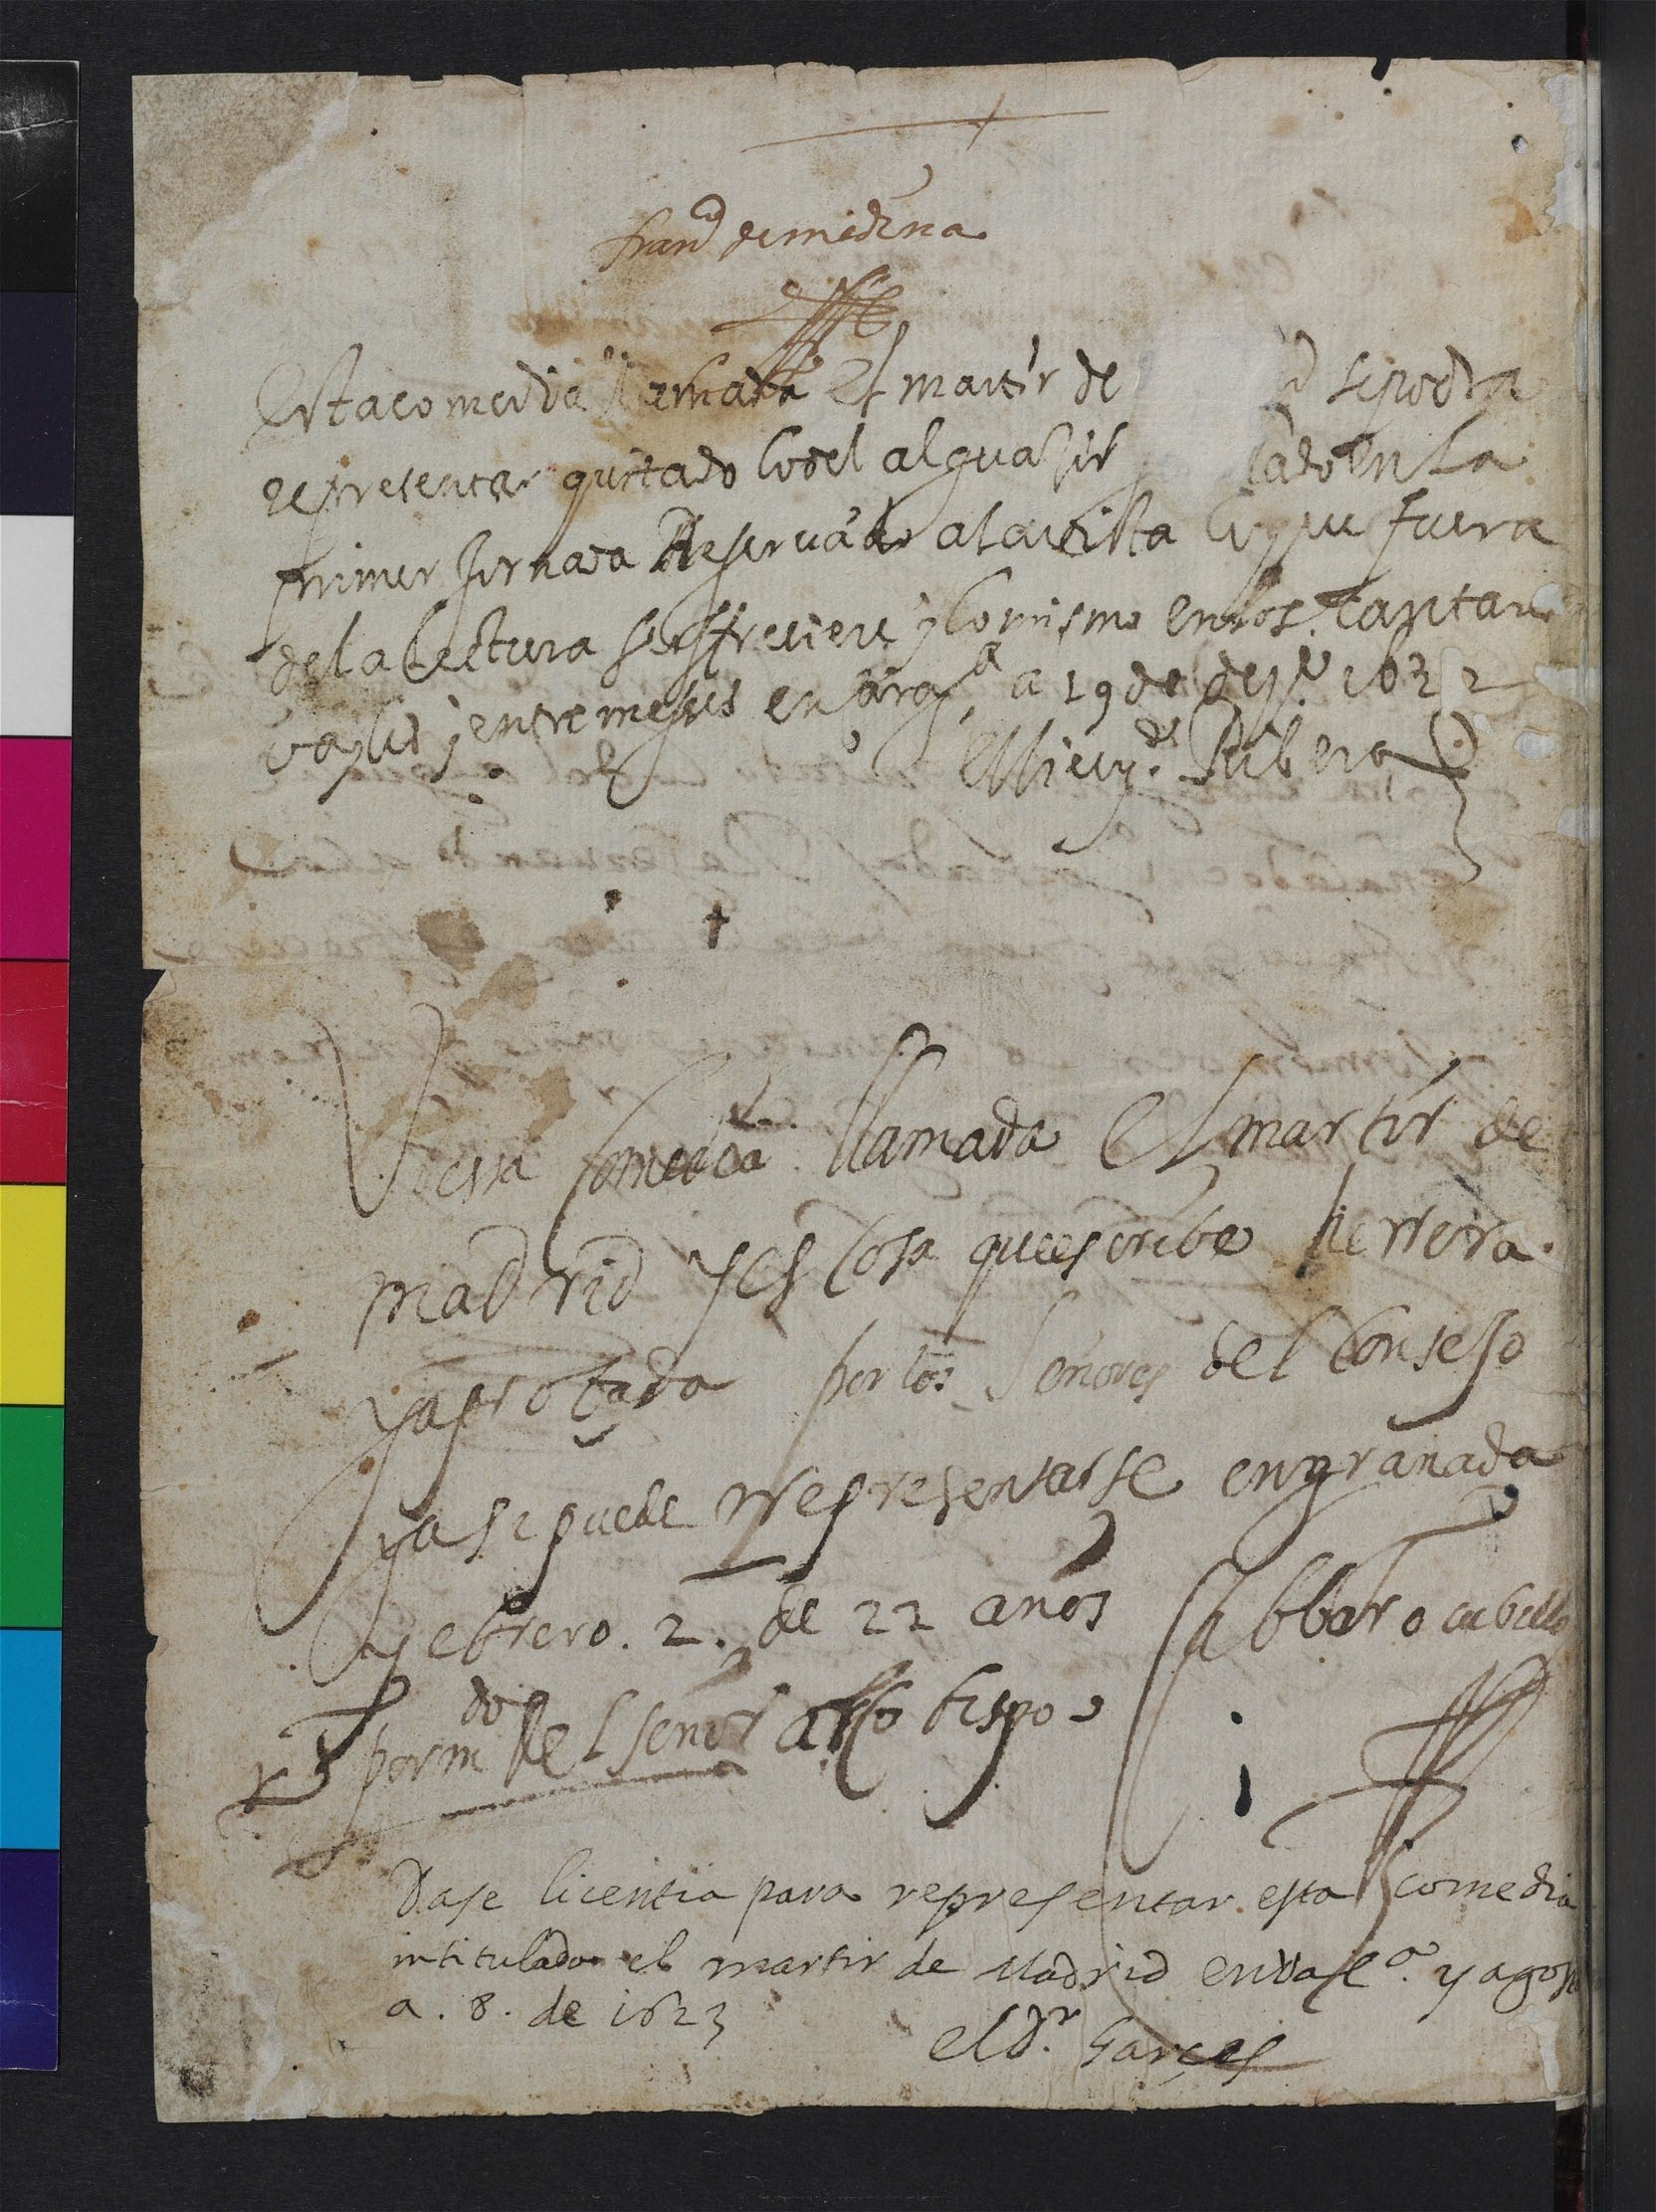 fran^co de medina
Esta comedia llamada El martir de d se podra
representar quitado lo del alguasil lado en la
primer Jornada Reservādo a la vista lo que fuera
de la lectura se offreciere y lo mismo en los cantares
vayles y entremesses en a 19 de 1622
El licen^do Ribera
Vi esta Comedia llamada El martir de
madrid y es Cosa que escribe herrera
y aprobada por los Señores del Consejo
y asi puede rrepresentarse en granada
y ebrero. 2. de 22 años cubillo
por m^do del señor arçobispo
Dase licentia para representar esta comedia
intitulada el martir de Madrid en val^a. y agosto
a. 8. de 1623
el D^r. Garçes